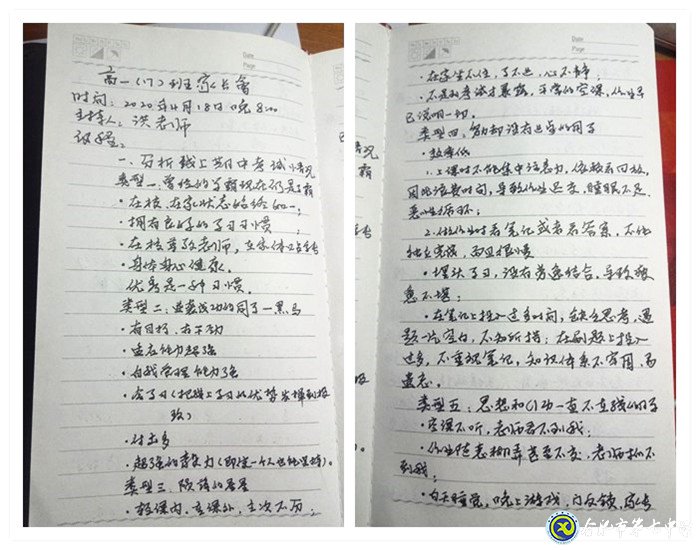 Date
Page
高一(17)班家长会
时间：2020年4月18日晚8:00
主持人：洪老师
议程：
一、分析线上期中考试情况
类型一：曾经的学霸现在仍是学霸
·在校、在家状态始终如一；
·拥有良好的学习习惯；
·在校尊敬老师，在家体谅
·身体身心健康。
优秀是一种习惯。
类型二：逆袭成功的同学—黑马
·有目标，有干劲
·适应能力超强
·自我管理能力强
·会学习(把线上学习的优势发挥到极致)
·付出多
·超强的毅力(即使一个人也能坚持)。
类型三：陨落的星星
·轻课内，重课外，主次不分；
Date
Page
·在家坐不住，学不进，心不静；
·不是到考试才暴露，平常的空课，作业早
已说明一切。
类型四：勤却没有起色的同学
·效率低
1.上课时不能集中注意力，依赖看回放，
因此浪费时间，导致作业迟交，睡眠不足，
恶性循环；
2.做作业时看笔记或者看答案，不能
独立完成，而且很慢
·埋头学习，没有劳逸结合，导致疲
惫不堪；
·在笔记上投入过多时间，缺乏思考，遇
题一片空白，不知所措；在刷题上投入
过多，不重视笔记，知识体系不牢固，易
遗忘。
类型五：思想和行动一直不在线的同学
·空课不听，老师看不到我；
·作业随意糊弄甚至不交，老师抓不
到我；
·白天睡觉，晚上游戏，门反锁，家长
合肥市第七中学